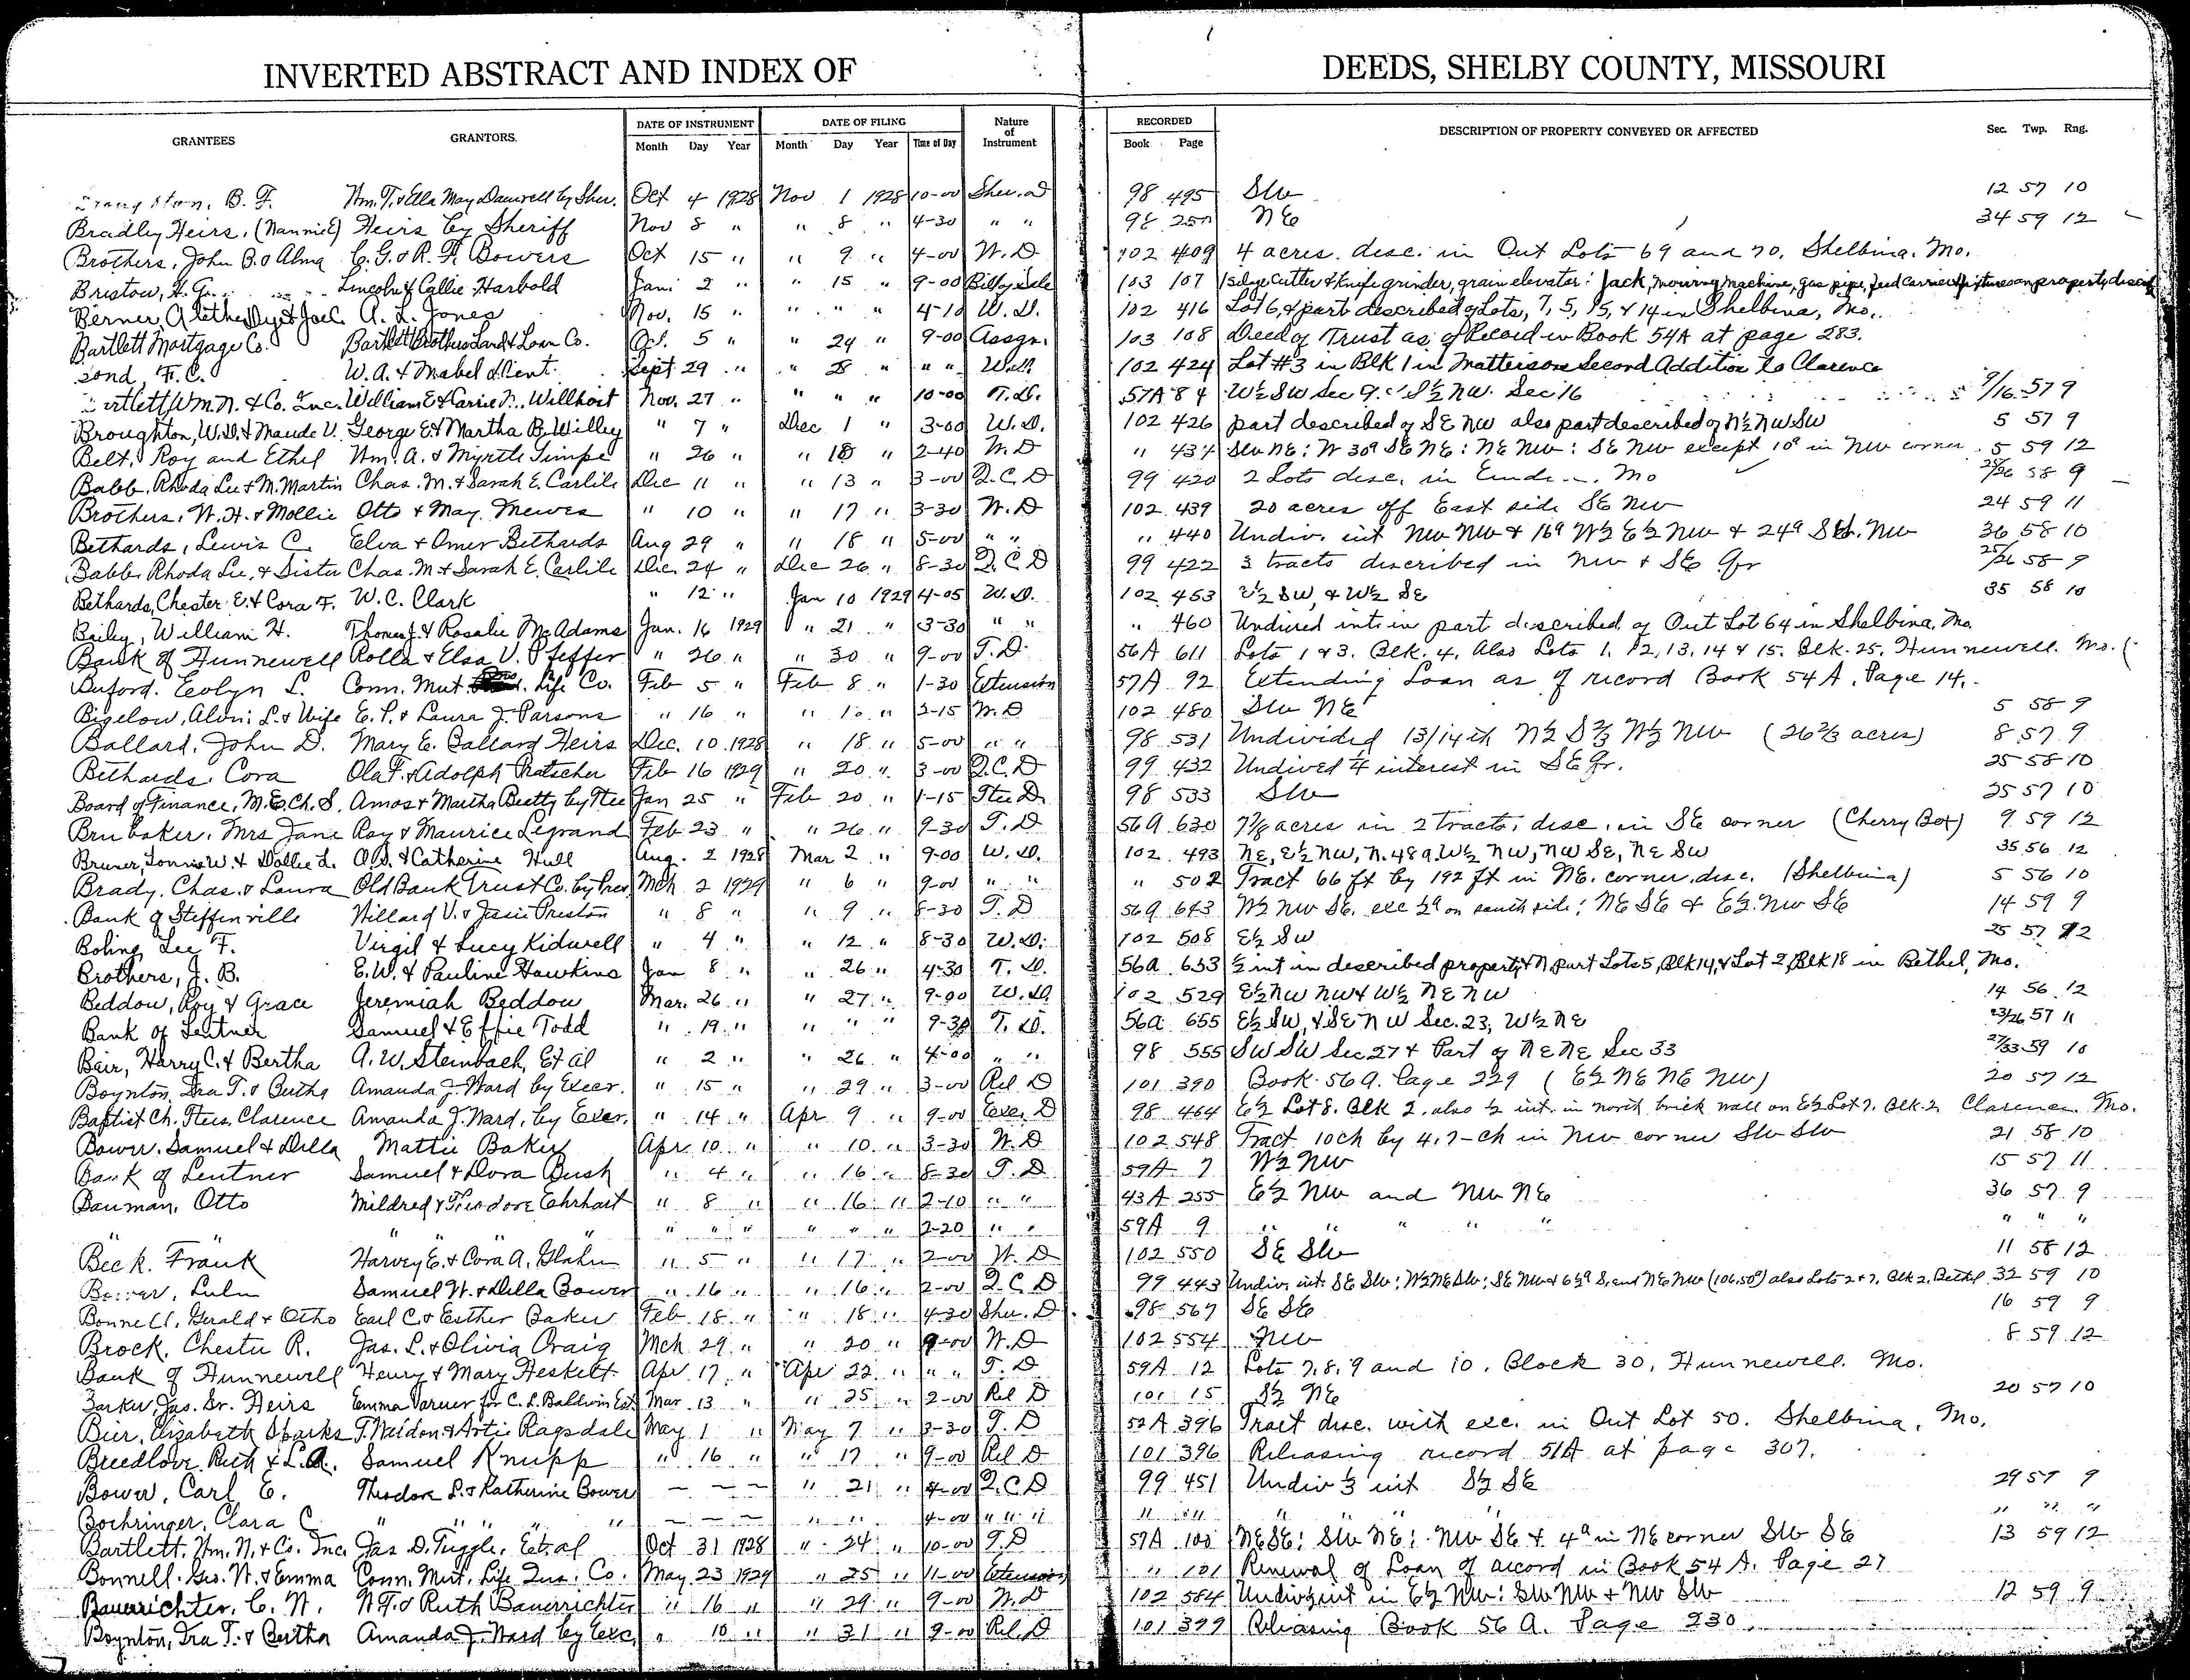 INVERTED ABSTRACT AND INDEX OF DEEDS, SHELBY COUNTY, MISSOURI
GRANTEES GRANTORS. DATE OF INSTRUMENT DATE OF FILING Nature of Instrument RECORDED DESCRIPTION OF PROPERTY CONVEYED OR AFFECTED Sec. Twp. Rng.
Month Day Year Month Day Year Time of Day Book Page
B. F. Wm. T. & Ella May by Sher. Oct 4 1928 Nov 1 1928 10-00 Sher. D 98 495 SW 12 57 10
Bradley Heirs, (Nannie E) Heirs by Sheriff Nov 8 " " 8 " 4-30 " " 98 NE 34 59 12
Brothers, John B. & Alma C. G. & R. F. Bowers Oct 15 " " 9 " 4-00 W. D 102 409 4 acres desc. in Out Lots 69 and 70, Shelbina, Mo.
Bristow, H. G. Lincoln & Callie Harbold Jan. 2 " " 15 " 9-00 Bill of Sale 103 107 1 Silage Cutter & Knife grinder, grain elevator: Jack, mowing machine, gas pipe, feed carrier & fixtures on property
Berner, A. L. Jones Nov. 15 " " " " 4-10 W. D. 102 416 Lot 6, & part described of Lots, 7, 5, 15, & 14 in Shelbina, Mo.
Bartlett Mortgage Co. Bartlett Brothers Land & Loan Co. Oct. 5 " " 24 " 9-00 Assgn. 103 108 Deed of Trust as of Record in Book 54A at page 283.
Bond, F. C. W. A. & Mabel Dent. Sept 29 " " 28 " " " W.D. 102 424 Lot #3 in Blk 1 in Mattersons Second Addition to Clarence
Bartlett, Wm. N. & Co. Inc. William E & Carrie Willhoit Nov. 27 " " " " 10-00 T. D. 57A 84 W½ SW Sec 9. & S½ NW. Sec 16 9/16 57 9
Broughton, W.D. & Maude V. George E. & Martha B. Willey " 7 " Dec 1 " 3-00 W. D. 102 426 part described of SE NW also part described of N½ NW SW 5 57 9
Belt, Roy and Ethel Wm. A. & Myrtle Timpe " 26 " " 10 " 2-40 W. D " 434 SW NE: W 30a SE NE: NE NW: SE NW except 10a in NW corner 5 59 12
Babb, Rhoda Lee & M. Martin Chas. M. & Sarah E. Carlile Dec 11 " " 13 " 3-00 Q. C. D 99 420 2 Lots desc. in Mo 25/26 58 9
Brothers, W. H. & Mollie Otto & May Mewes " 10 " " 17 " 3-30 W. D 102 439 20 acres off East side SE NW 24 59 11
Bethards, Lewis C. Elva & Omer Bethards Aug 29 " " 18 " 5-00 " " " 440 Undiv. int NW NW & 16a W½ E½ NW & 24a NW 36 58 10
Babb, Rhoda Lee, & Sister Chas. M & Sarah E. Carlile Dec. 24 " Dec 26 " 8-30 Q. C D 99 422 3 tracts described in NW & SE Qr 25/26 58 9
Bethards, Chester E. & Cora F. W. C. Clark " 12 " Jan 10 1929 4-05 W. D. 102 453 E½ SW, & W½ SE 35 58 10
Bailey, William H. Thomas J. & Rosalie McAdams Jan. 16 1929 " 21 " 3-30 " " " 460 Undived int in part described of Out Lot 64 in Shelbina, Mo.
Bank of Hunnewell Rolla & Elsa V. Pfeffer " 26 " " 30 " 9-00 T. D. 56A 611 Lots 1 & 3. Blk. 4. Also Lots 1, 12, 13, 14 & 15. Blk. 25. Hunnewell. Mo.
Buford. Evelyn L. Conn. Mut. Life Co. Feb 5 " Feb 8 " 1-30 Extension 57A 92 Extending Loan as of record Book 54A. Page 14.
Bigelow, Alvin L. & Wife E. P. & Laura J. Parsons " 16 " " " 2-15 W. D 102 480 SW NE 5 58 9
Ballard, John D. Mary E. Ballard Heirs Dec. 10 1928 " 18 " 5-00 " " 98 531 Undivided 13/14th N½ S⅔ W½ NW (26⅔ acres) 8 57 9
Bethards, Cora Ola F. & Adolph Feb 16 1929 " 20 " 3-00 Q. C. D 99 432 Undived ¼ interest in SE Qr. 25 58 10
Board of Finance, M. E. Ch. S. Amos & Martha Beatty by Ttee Jan 25 " Feb 20 " 1-15 Ttee D. 98 533 SW 25 57 10
Brubaker, Mrs Jane Ray & Maurice Legrand Feb 23 " " 26 " 9-30 T. D 56A 630 7⅞ acres in 2 tracts, desc. in SE corner (Cherry Box) 9 59 12
Bruner, Lonnie W. & Dollie L. O. S. & Catherine Hull Aug. 2 1928 Mar 2 " 9-00 W. D. 102 493 NE, E½ NW, N. 48a. W½ NW, NW SE, NE SW 35 56 12
Brady, Chas. & Laura Old Bank Trust Co. by Pres Mch 2 1929 " 6 " 9-00 " " " 502 Tract 66 ft by 192 ft in NE. corner. desc. (Shelbina) 5 56 10
Bank of Steffenville Willard V. & Jessie Preston " 8 " " 9 " 8-30 T. D 56A 643 W½ NW SE. exc ½a on south side; NE SE & E½ NW SE 14 59 9
Boling, Lee F. Virgil & Lucy Kidwell " 4 " " 12 " 8-30 W. D. 102 508 E½ SW 25 57 12
Brothers, J. B. E. W. & Pauline Hawkins Jan 8 " " 26 " 4-30 T. D. 56A 653 ½ int in described property & N. part Lots 5, Blk 14, & Lot 2, Blk 18 in Bethel, Mo.
Beddow, Roy & Grace Jeremiah Beddow Mar. 26 " " 27 " 9-00 W. D. 102 529 E½ NW NW & W½ NE NW 14 56 12
Bank of Lentner Samuel & Effie Todd " 19 " " " " 9-30 T. D. 56A 655 E½ SW, & SE NW Sec. 23, W½ NE 23/26 57 11
Bair, Harry C. & Bertha A. W. Steinbach, Et al " 2 " " 26 " 4-00 " " 98 555 SW SW Sec 27 & Part of NE NE Sec 33 27/33 59 10
Boynton, Ira T. & Bertha Amanda J. Ward by Execr. " 15 " " 29 " 3-00 Rel D 101 390 Book 56A. Page 229 (E½ NE NE NW) 20 57 12
Baptist Ch. Ttees. Clarence Amanda J. Ward, by Exer. " 14 " Apr 9 " 9-00 Exe. D 98 464 E½ Lot 8. Blk 2. also ½ int. in north brick wall on E½ Lot 7. Blk. 2 Clarence Mo.
Bower, Samuel & Della Mattie Baker Apr 10 " " 10 " 3-30 W. D 102 548 Tract 10 ch by 4.7- ch in NW corner SW SW 21 58 10
Bank of Lentner Samuel & Dora Bush " 4 " " 16 " 8-30 T. D 59A 7 W½ NW 15 57 11
Bauman, Otto Mildred & Theodore Ehrhart " 8 " " 16 " 2-10 " " 43A 255 E½ NW and NW NE 36 57 9
" " " " " " " " 2-20 " " 59A 9 " " " " " " " "
Beck. Frank Harvey E. & Cora A. Glahn " 5 " " 17 " 2-00 W. D 102 550 SE SW 11 58 12
Bower, Lulu Samuel W. & Della Bower " 16 " " 16 " 2-00 Q. C. D 99 443 Undiv. int: SE SW: W½ NE SW: SE NW & 6½a S. end NE NW (106.50a) also Lots 2 & 7. Blk 2. Bethel 32 59 10
Bonnell, Gerald & Otho Earl C. & Esther Baker Feb 18 " " 18 " 4-30 Sher. D 98 567 SE SE 16 59 9
Brock, Chester R. Jas. L. & Olivia Craig Mch 29 " " 20 " 9-00 W. D 102 554 NW 8 59 12
Bank of Hunnewell Henry & Mary Heskett Apr 17 " Apr 22 " " " T. D 59A 12 Lots 7, 8, 9 and 10, Block 30, Hunnewell. Mo.
Barker, Jas. Sr. Heirs Emma Varner for C. L. Baldwin Est Mar 13 " " 25 " 2-00 Rel D 101 15 S½ NE 20 57 10
Bier, Elizabeth Sparks T. Weldon & Artie Ragsdale May 1 " May 7 " 3-30 T. D 52A 396 Tract desc. with exc. in Out Lot 50. Shelbina, Mo.
Breedlove, Ruth & L.A. Samuel Knupp " 16 " " 17 " 9-00 Rel D 101 396 Releasing record 51A at page 307.
Bower, Carl E. Theodore L. & Katherine Bower — — — " 21 " 4-00 Q. C. D 99 451 Undiv ⅓ int S½ SE 29 57 9
Boehringer, Clara C " " " " — — — " " " 4-00 " " " " " " " " " " "
Bartlett, Wm. N. & Co. Inc. Jas. D. Tuggle, Et. al Oct 31 1928 " 24 " 10-00 T. D 57A 100 NE SE: SW NE: NW SE & 4a in NE corner SW SE 13 59 12
Bonnell. Geo. W. & Emma Conn. Mut. Life Ins. Co. May 23 1929 " 25 " 11-00 Extension " 101 Renewal of Loan of record in Book 54A. Page 27
Bauerrichter, C. W. W. F. & Ruth Bauerrichter " 16 " " 29 " 9-00 W. D 102 584 Undiv int in E½ NW: SW NW & NW SW 12 59 9
Boynton, Ira T. & Bertha Amanda J. Ward by Exc. " 10 " " 31 " 9-00 Rel. D 101 399 Releasing Book 56A. Page 230.